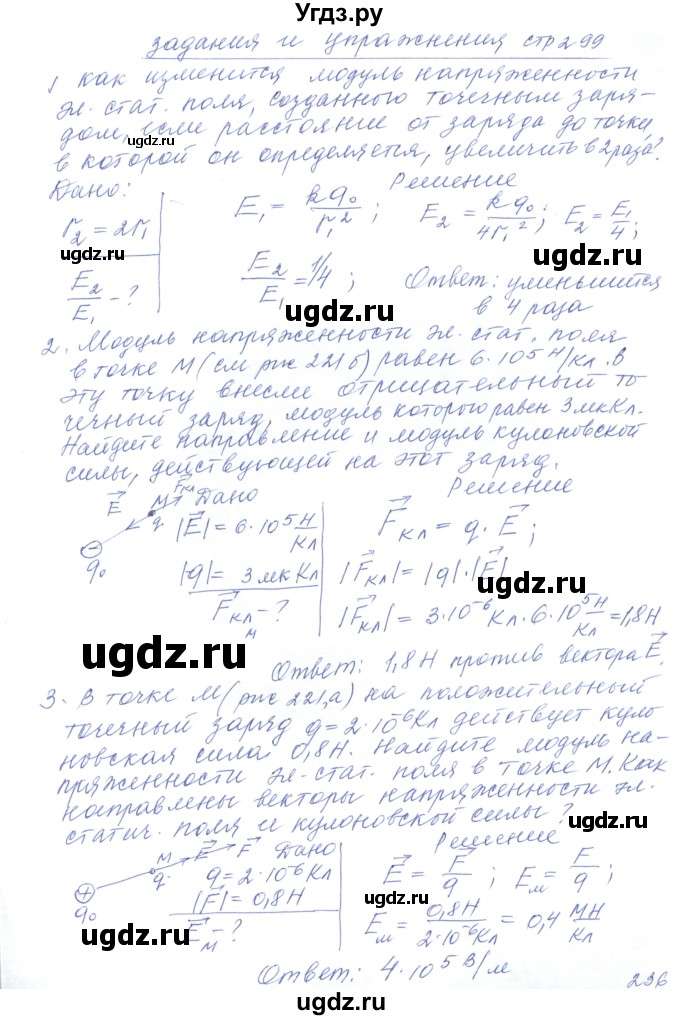 Угдз.ру
задания и упражнения стр 299
1 как изменится модуль напряженности
эл. стат. поля, созданного точечным заря-
дом, если расстояние от заряда до точки,
в которой он определяется, увеличить в 2 раза?
Дано: Решение
r₂ = 2r₁
E₂/E₁ - ?
E₁ = kq₀/r₁² ; E₂ = kq₀/4r₁² ; E₂ = E₁/4 ;
E₂/E₁ = 1/4 ; Ответ: уменьшится
в 4 раза
2. Модуль напряженности эл. стат. поля
в точке М (см рис 221б) равен 6·10⁵ Н/кл. В
эту точку внесли отрицательный то
чечный заряд, модуль которого равен 3мкКл.
Найдите направление и модуль кулоновской
силы, действующей на этот заряд.
E⃗ M F⃗кл q q₀
Дано Решение
|E⃗| = 6·10⁵ Н/Кл
|q| = 3мкКл
F⃗кл - ?
м
F⃗кл = q·E⃗ ;
|F⃗кл| = |q|·|E⃗|
|F⃗кл| = 3·10⁻⁶Кл·6·10⁵ Н/Кл = 1,8Н
Ответ: 1,8Н против вектора E⃗.
3. В точке М (рис 221,а) на положительный
точечный заряд q=2·10⁻⁶Кл действует куло
новская сила 0,8Н. Найдите модуль на-
пряженности эл-стат. поля в точке М. Как
направлены векторы напряженности эл.
статич. поля и кулоновской силы?
M E⃗ F⃗ q + q₀
Дано Решение
q = 2·10⁻⁶Кл
|F⃗| = 0,8Н
E⃗м - ?
E⃗ = F⃗/q ; Eм = F/q ;
Eм = 0,8Н/2·10⁻⁶Кл = 0,4 МН/Кл
Ответ: 4·10⁵ В/м
236
ugdz.ru
ugdz.ru
ugdz.ru
ugdz.ru
ugdz.ru
ugdz.ru
ugdz.ru
ugdz.ru
ugdz.ru
ugdz.ru
ugdz.ru
ugdz.ru